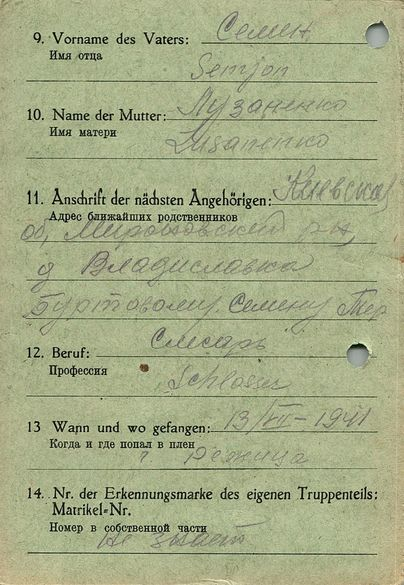 9. Vorname des Vaters: Семен
Имя отца
Semjon
10. Name der Mutter: Лузаненко
Имя матери
Lusanenko
11. Anschrift der nächsten Angehörigen: Киевская
Адрес ближайших родственников
об, Мироновский р-н,
д Владиславка
Буртовому Семену Тер
Слесарь
12. Beruf:
Профессия
Schlosser
13 Wann und wo gefangen: 13/VII-1941
Когда и где попал в плен
г. Режица
14. Nr. der Erkennungsmarke des eigenen Truppenteils:
Matrikel=Nr.
Номер в собственной части
Не знает